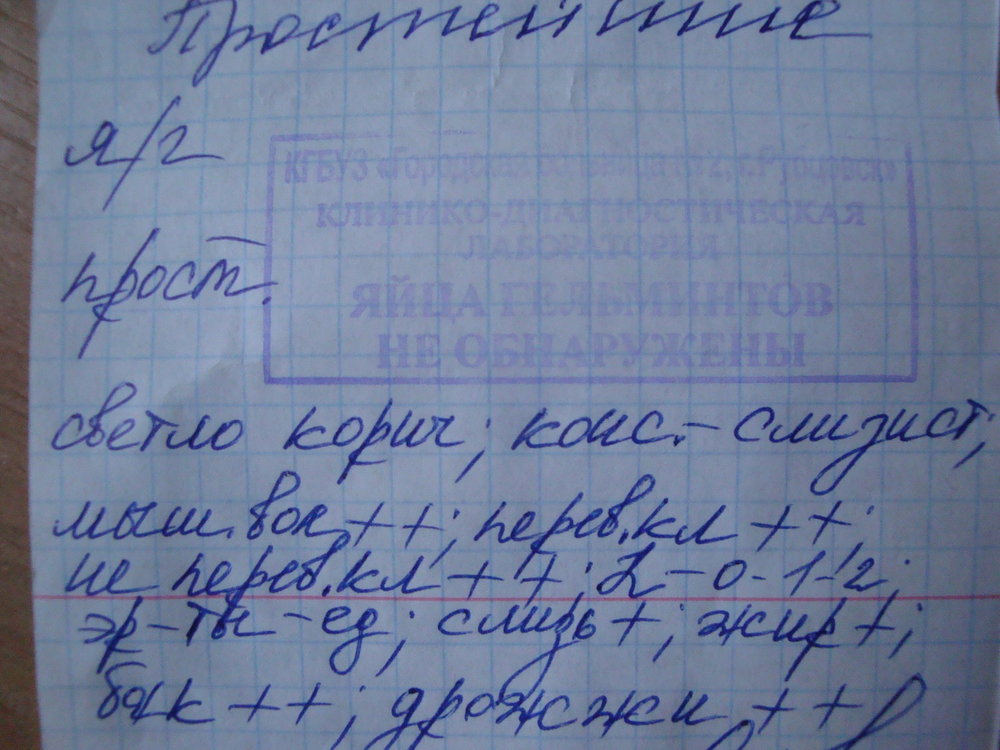 Простейшие
я/г
КГБУЗ «Городская больница №2, г.Рубцовск»
КЛИНИКО-ДИАГНОСТИЧЕСКАЯ
ЛАБОРАТОРИЯ
прост.
ЯЙЦА ГЕЛЬМИНТОВ
НЕ ОБНАРУЖЕНЫ
светло корич; конс.- слизист;
мыш. вол ++; перев.кл ++;
не перев.кл ++; L-0-1-2;
эр-ты-ед; слизь +; жир +;
бак ++; дрожжи ++